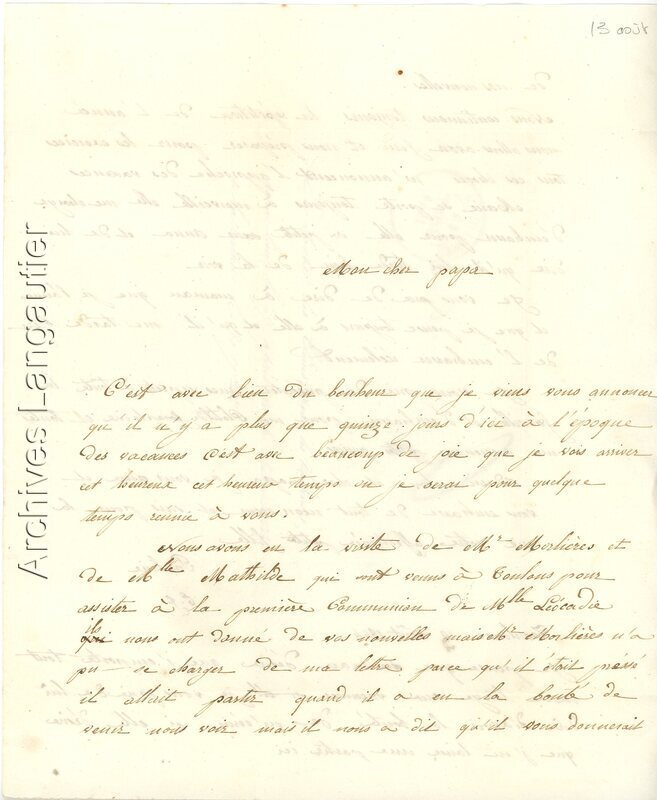 13 août
Archives Langautier
Mon cher papa
C'est avec bien du bonheur que je viens vous annoncer
qu'il n'y a plus que quinze jours d'ici à l'époque
des vacances c'est avec beaucoup de joie que je vois arriver
cet heureux cet heureux temps ou je serai pour quelque
temps reunie à vous.
Nous avons eu la visite de Mr Morlières et
de Mlle Mathilde qui ont venus à Toulons pour
assister à la première Communion de Mlle Léocadie
ils nous ont donné de vos nouvelles mais Mr Morlières n'a
pu se charger de ma lettre parce qu'il était préssé
il allait partir quand il a eu la bonté de
venir nous voir mais il nous a dit qu'il vous donnerait